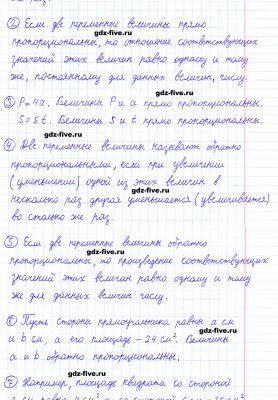 gdz-five.ru
② Если две переменные величины прямо
пропорциональны, то отношение соответствующих
значений этих величин равно одному и тому
же, постоянному для данных величин, числу.
gdz-five.ru
③ P = 4a. Величины P и a прямо пропорциональны.
S = 5t. Величины S и t прямо пропорциональны.
gdz-five.ru
④ Две переменные величины называют обратно
пропорциональными, если при увеличении
(уменьшении) одной из этих величин в
несколько раз другая уменьшается (увеличивается)
во столько же раз.
gdz-five.ru
⑤ Если две переменные величины обратно
пропорциональны, то произведение соответствующих
значений этих величин равно одному и тому
же для данных величин числу.
gdz-five.ru
⑥ Пусть стороны прямоугольника равны a см
и b см, а его площадь - 24 см². Величины
a и b обратно пропорциональны.
gdz-five.ru
⑦ Например, площадь квадрата со стороной